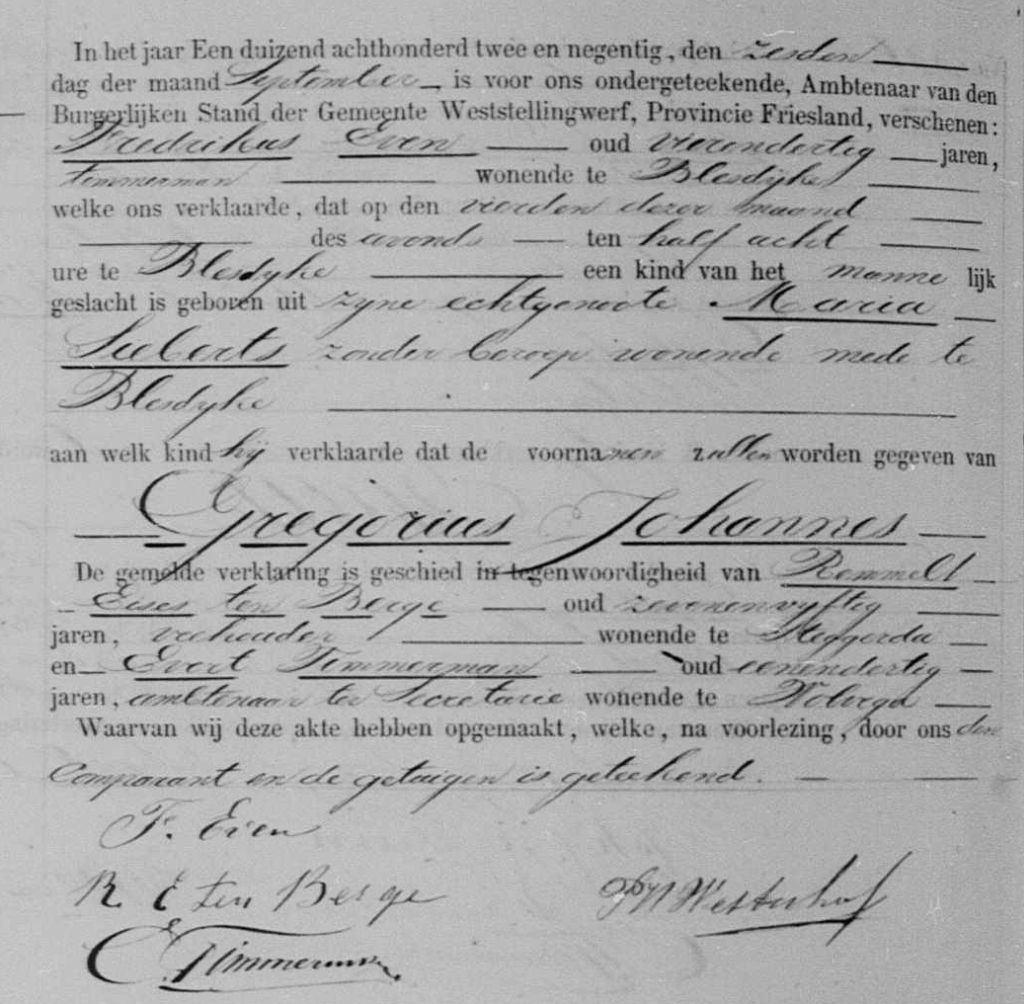 In het jaar Een duizend achthonderd twee en negentig, den zesden
dag der maand September, is voor ons ondergeteekende, Ambtenaar van den
Burgerlijken Stand der Gemeente Weststellingwerf, Provincie Friesland, verschenen:
Fredrikus Even oud vierendertig jaren,
timmerman wonende te Blesdyke
welke ons verklaarde, dat op den vierden dezer maand
des avonds ten half acht
ure te Blesdyke een kind van het mannelijk
geslacht is geboren uit zyne echtgenoote Maria
Sieberts zonder beroep wonende mede te
Blesdyke
aan welk kind hij verklaarde dat de voornamen zullen worden gegeven van
Gregorius Johannes
De gemelde verklaring is geschied in tegenwoordigheid van Remmelt
Eises ten Berge oud zevenenvyftig
jaren, veehouder wonende te Steggerda
en Evert Timmerman oud eenendertig
jaren, ambtenaar ter Secretarie wonende te Wolvega
Waarvan wij deze akte hebben opgemaakt, welke, na voorlezing, door ons den
Comparant en de getuigen is geteekend.
F. Even
R. E ten Berge
PW Westerhof
E. Timmerman